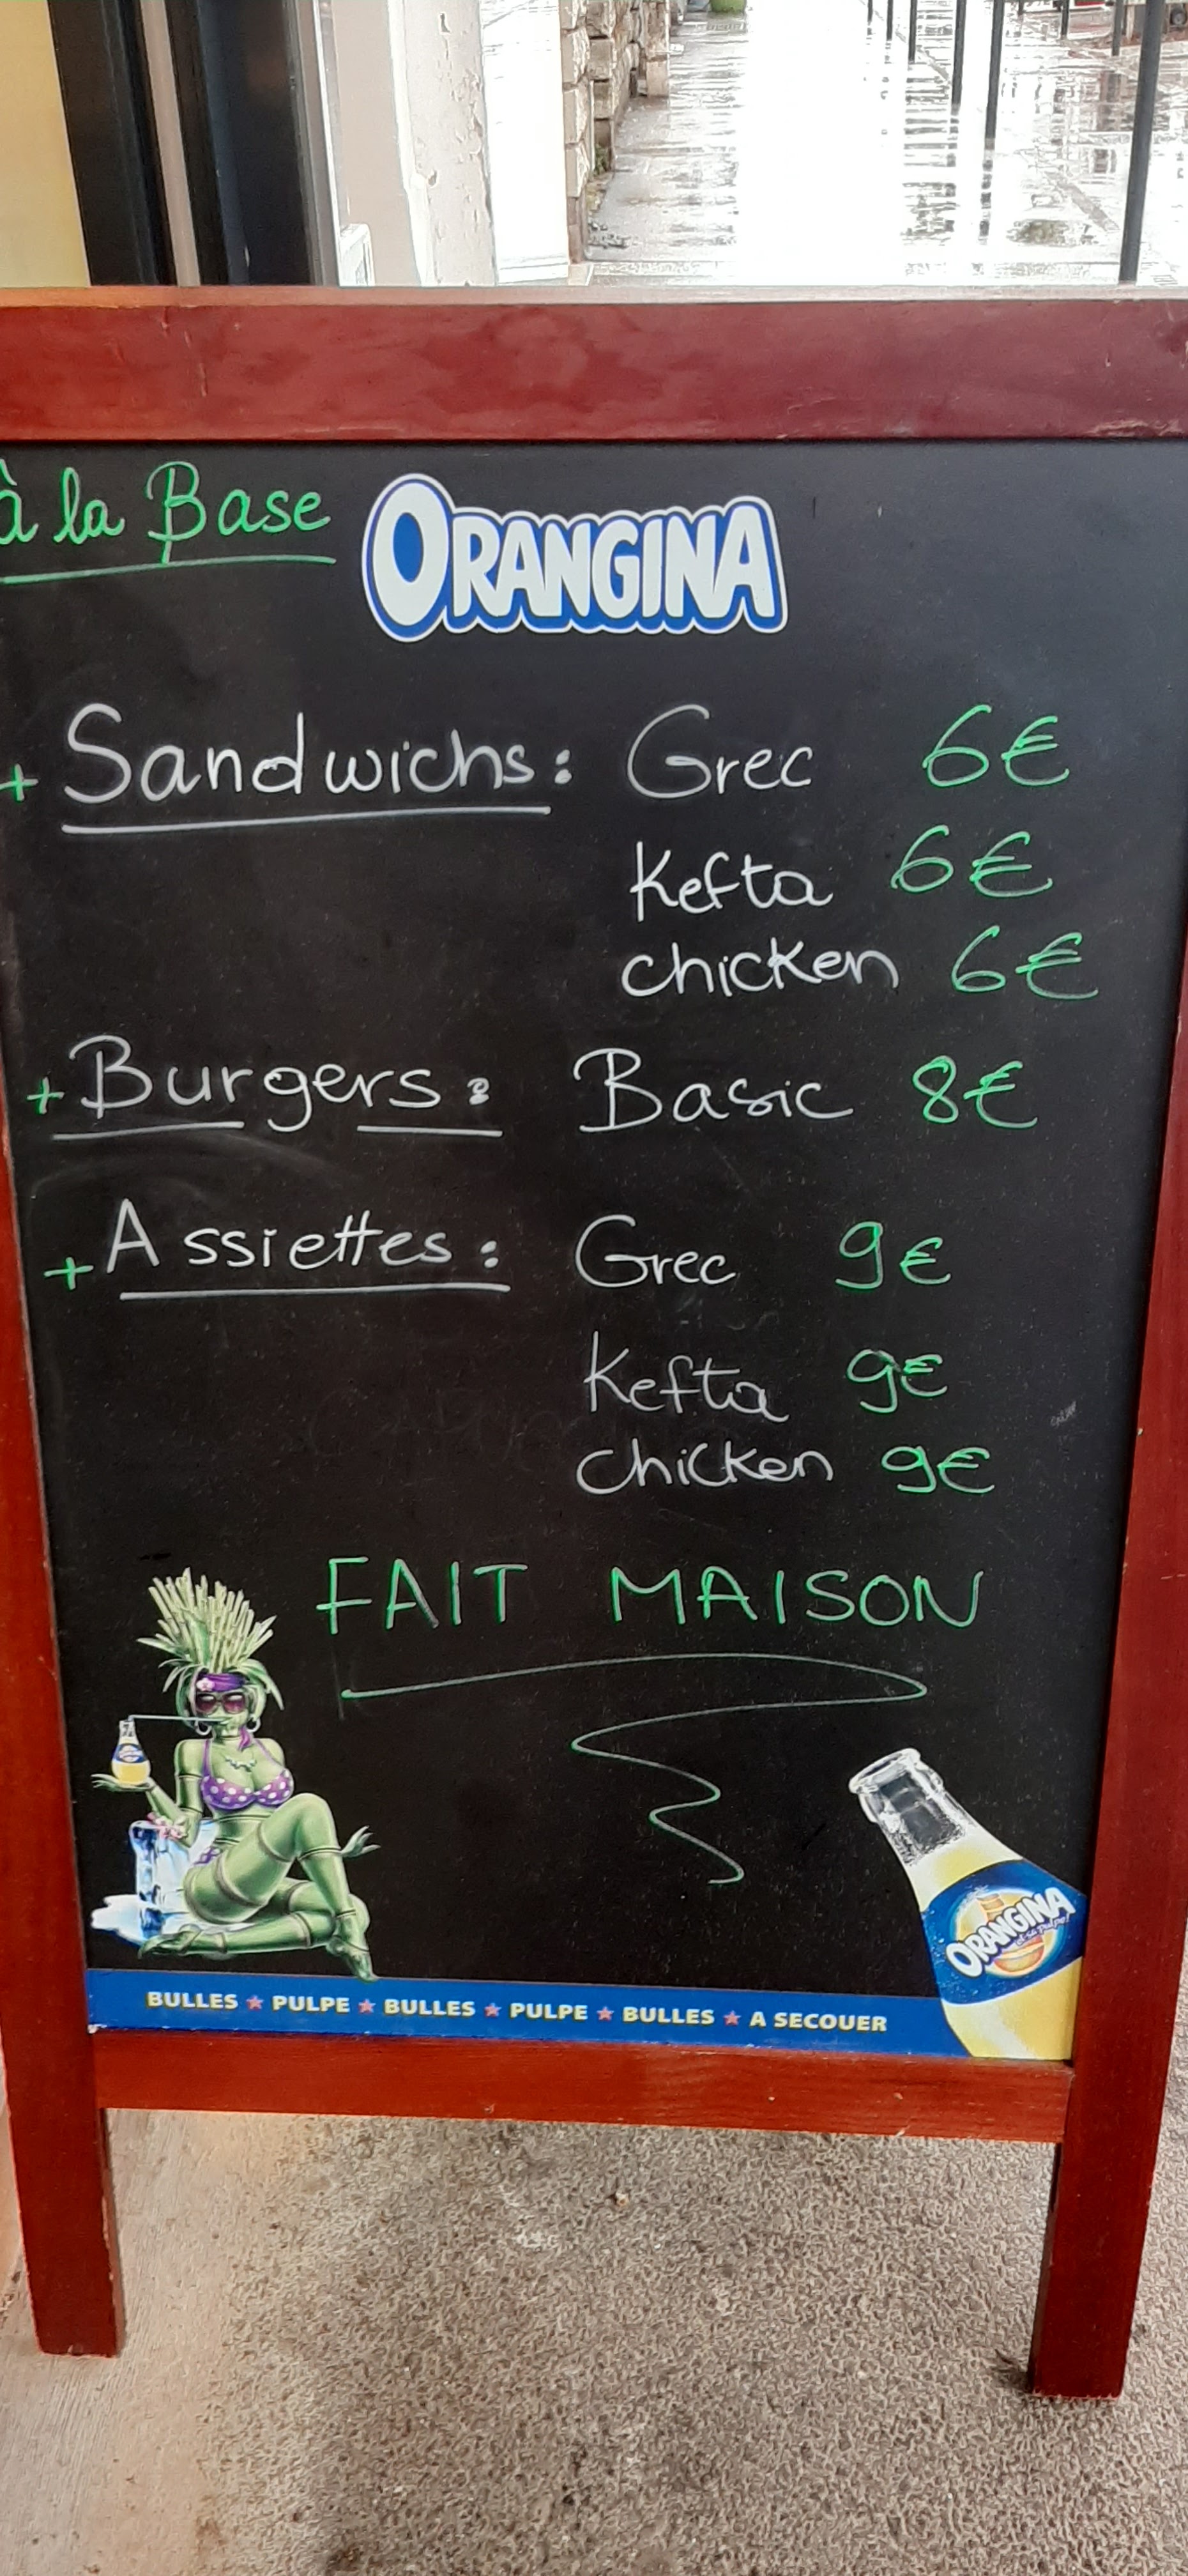 à la Base
ORANGINA
+ Sandwichs: Grec 6€
Kefta 6€
chicken 6€
+ Burgers: Basic 8€
+ Assiettes: Grec 9€
Kefta 9€
chicken 9€
FAIT MAISON
ORANGINA
et sa pulpe!
BULLES ★ PULPE ★ BULLES ★ PULPE ★ BULLES ★ A SECOUER